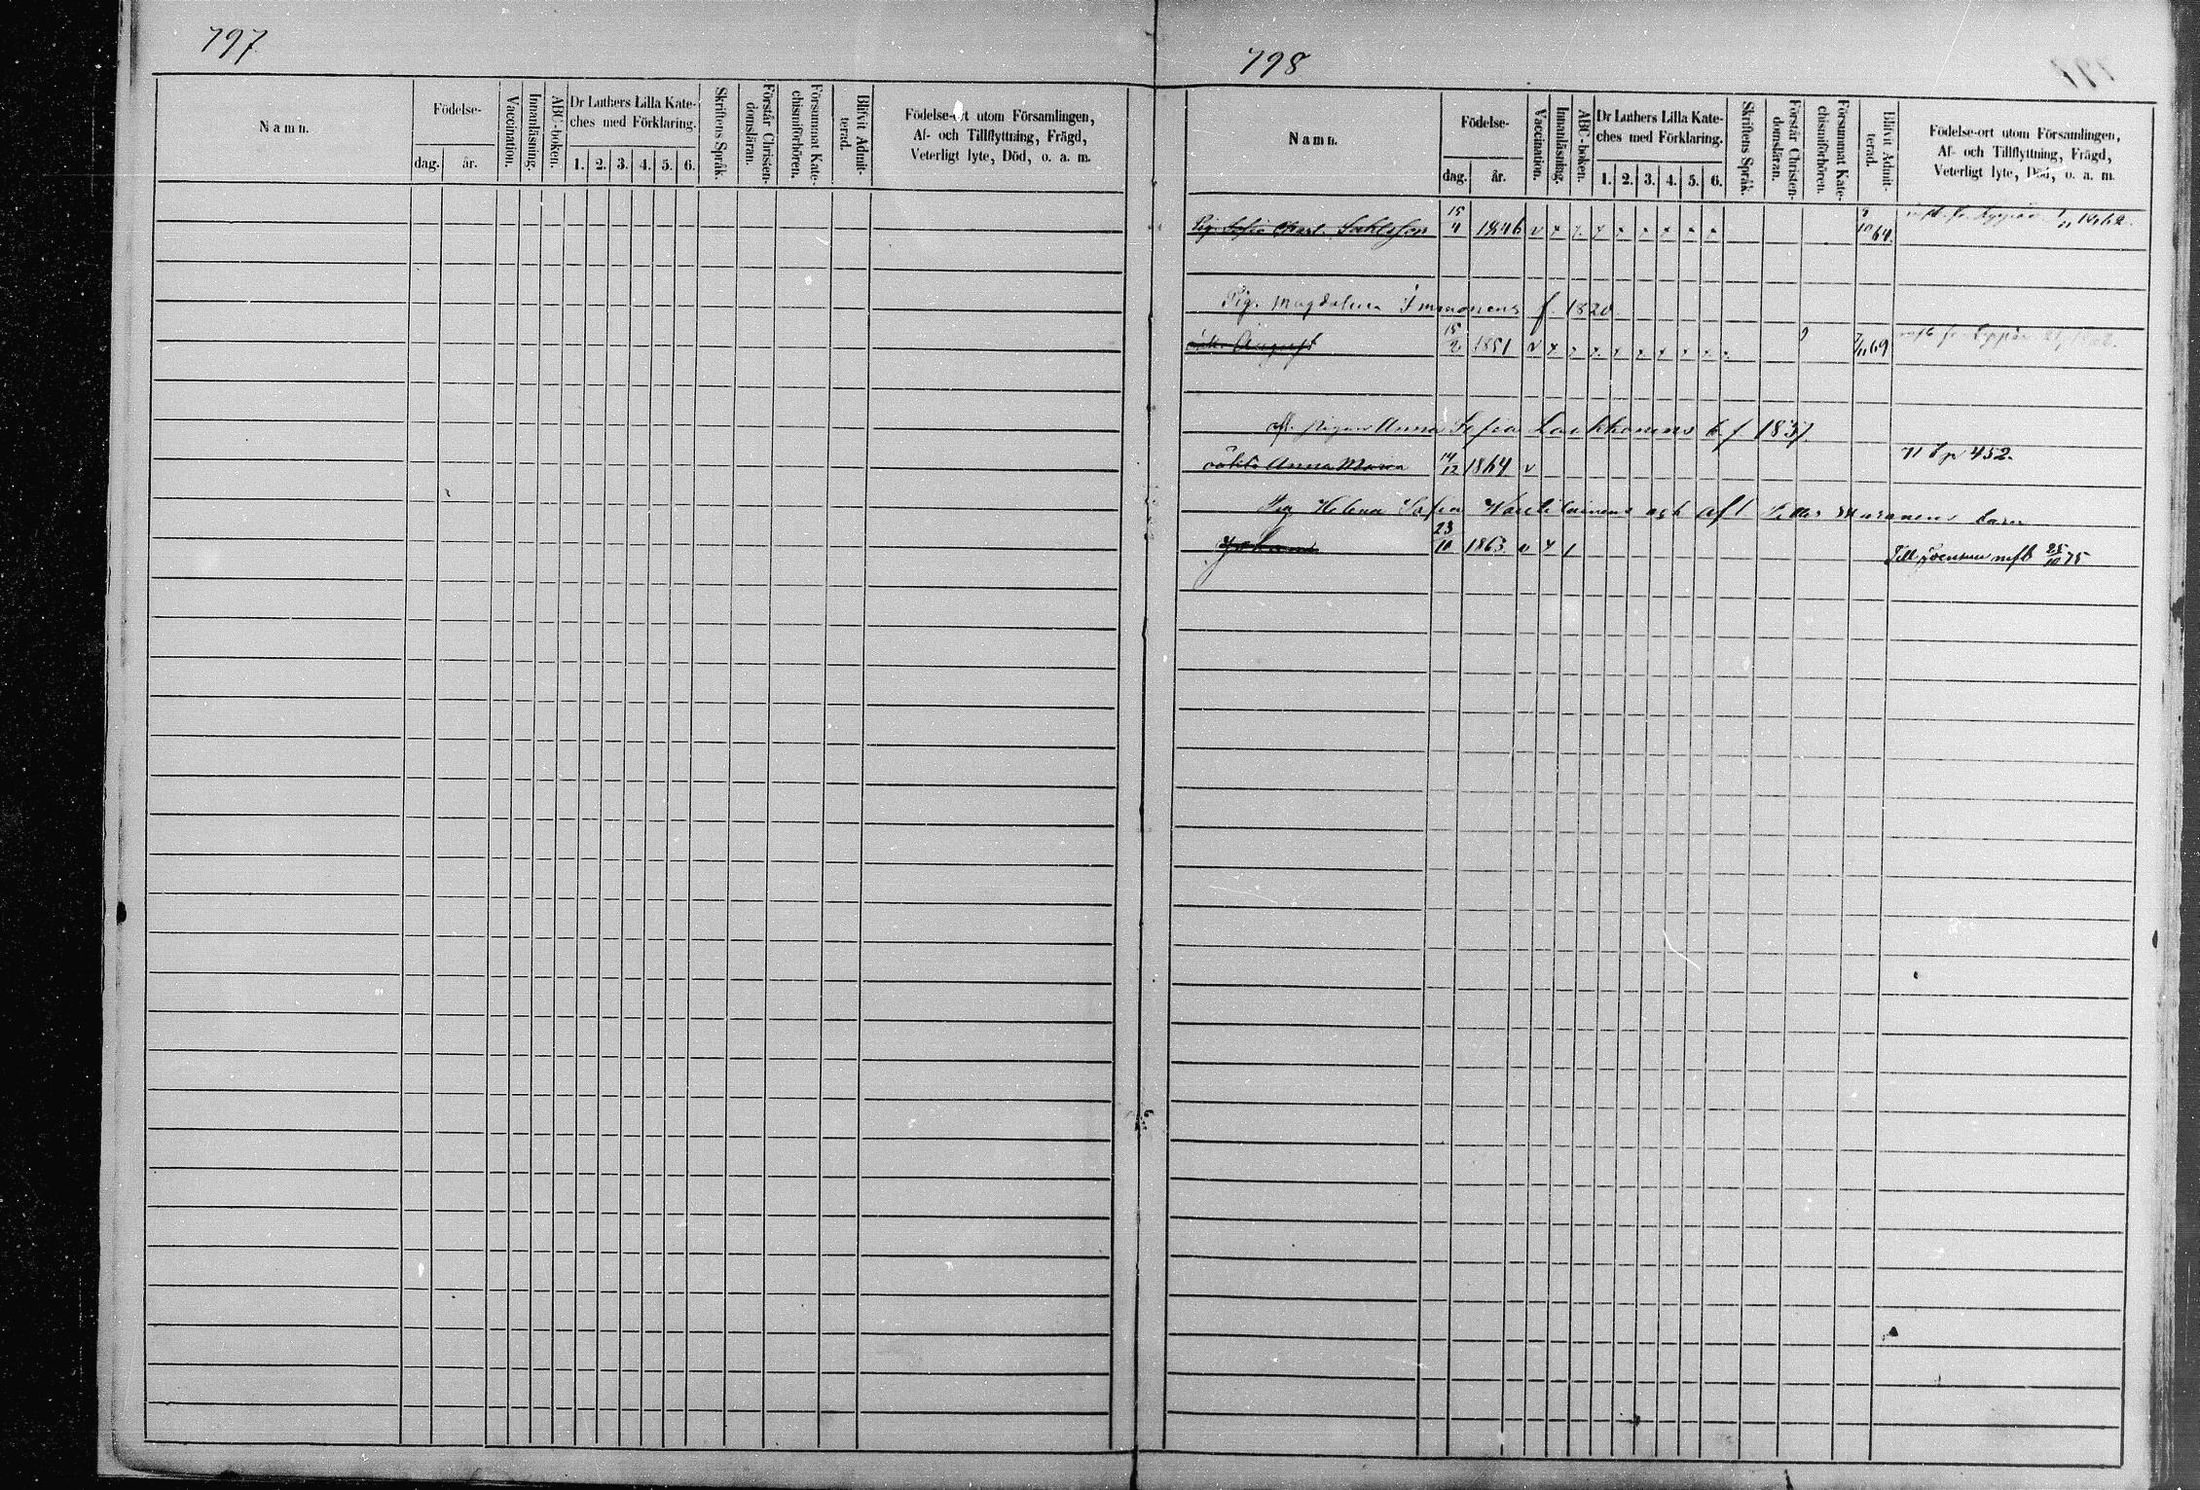 797
Namn.
Födelse-
dag. år.
Vaccination.
Innanläsning.
ABC-boken.
Dr Luthers Lilla Kate-
ches med Förklaring.
1. 2. 3. 4. 5. 6.
Skriftens Språk.
Förstår Christen-
domsläran.
Försummat Kate-
chismiförhören.
Blifvit Admit-
terad.
Födelse-ort utom Församlingen,
Af- och Tillflyttning, Frägd,
Veterligt lyte, Död, o. a. m.
798
Namn.
Födelse-
dag. år.
Vaccination.
Innanläsning.
ABC-boken.
Dr Luthers Lilla Kate-
ches med Förklaring.
1. 2. 3. 4. 5. 6.
Skriftens Språk.
Förstår Christen-
domsläran.
Försummat Kate-
chismiförhören.
Blifvit Admit-
terad.
Födelse-ort utom Församlingen,
Af- och Tillflyttning, Frägd,
Veterligt lyte, Död, o. a. m.
Pig. Sofia 15/4 1846 v x x x x x x x x 64.
Pig. Magdalena Immonens f. 1820
August 15/2 1851 v x x x x x x x x 7/11 69
Anna Sofia b. f 1837.
oäkta Anna Maria 14/12 1864 v 71 b p 452.
Pig Helena Sofia och afl Petter
Johan 23/10 1863 v x 1 Till Joensuu mfb 25/10 75